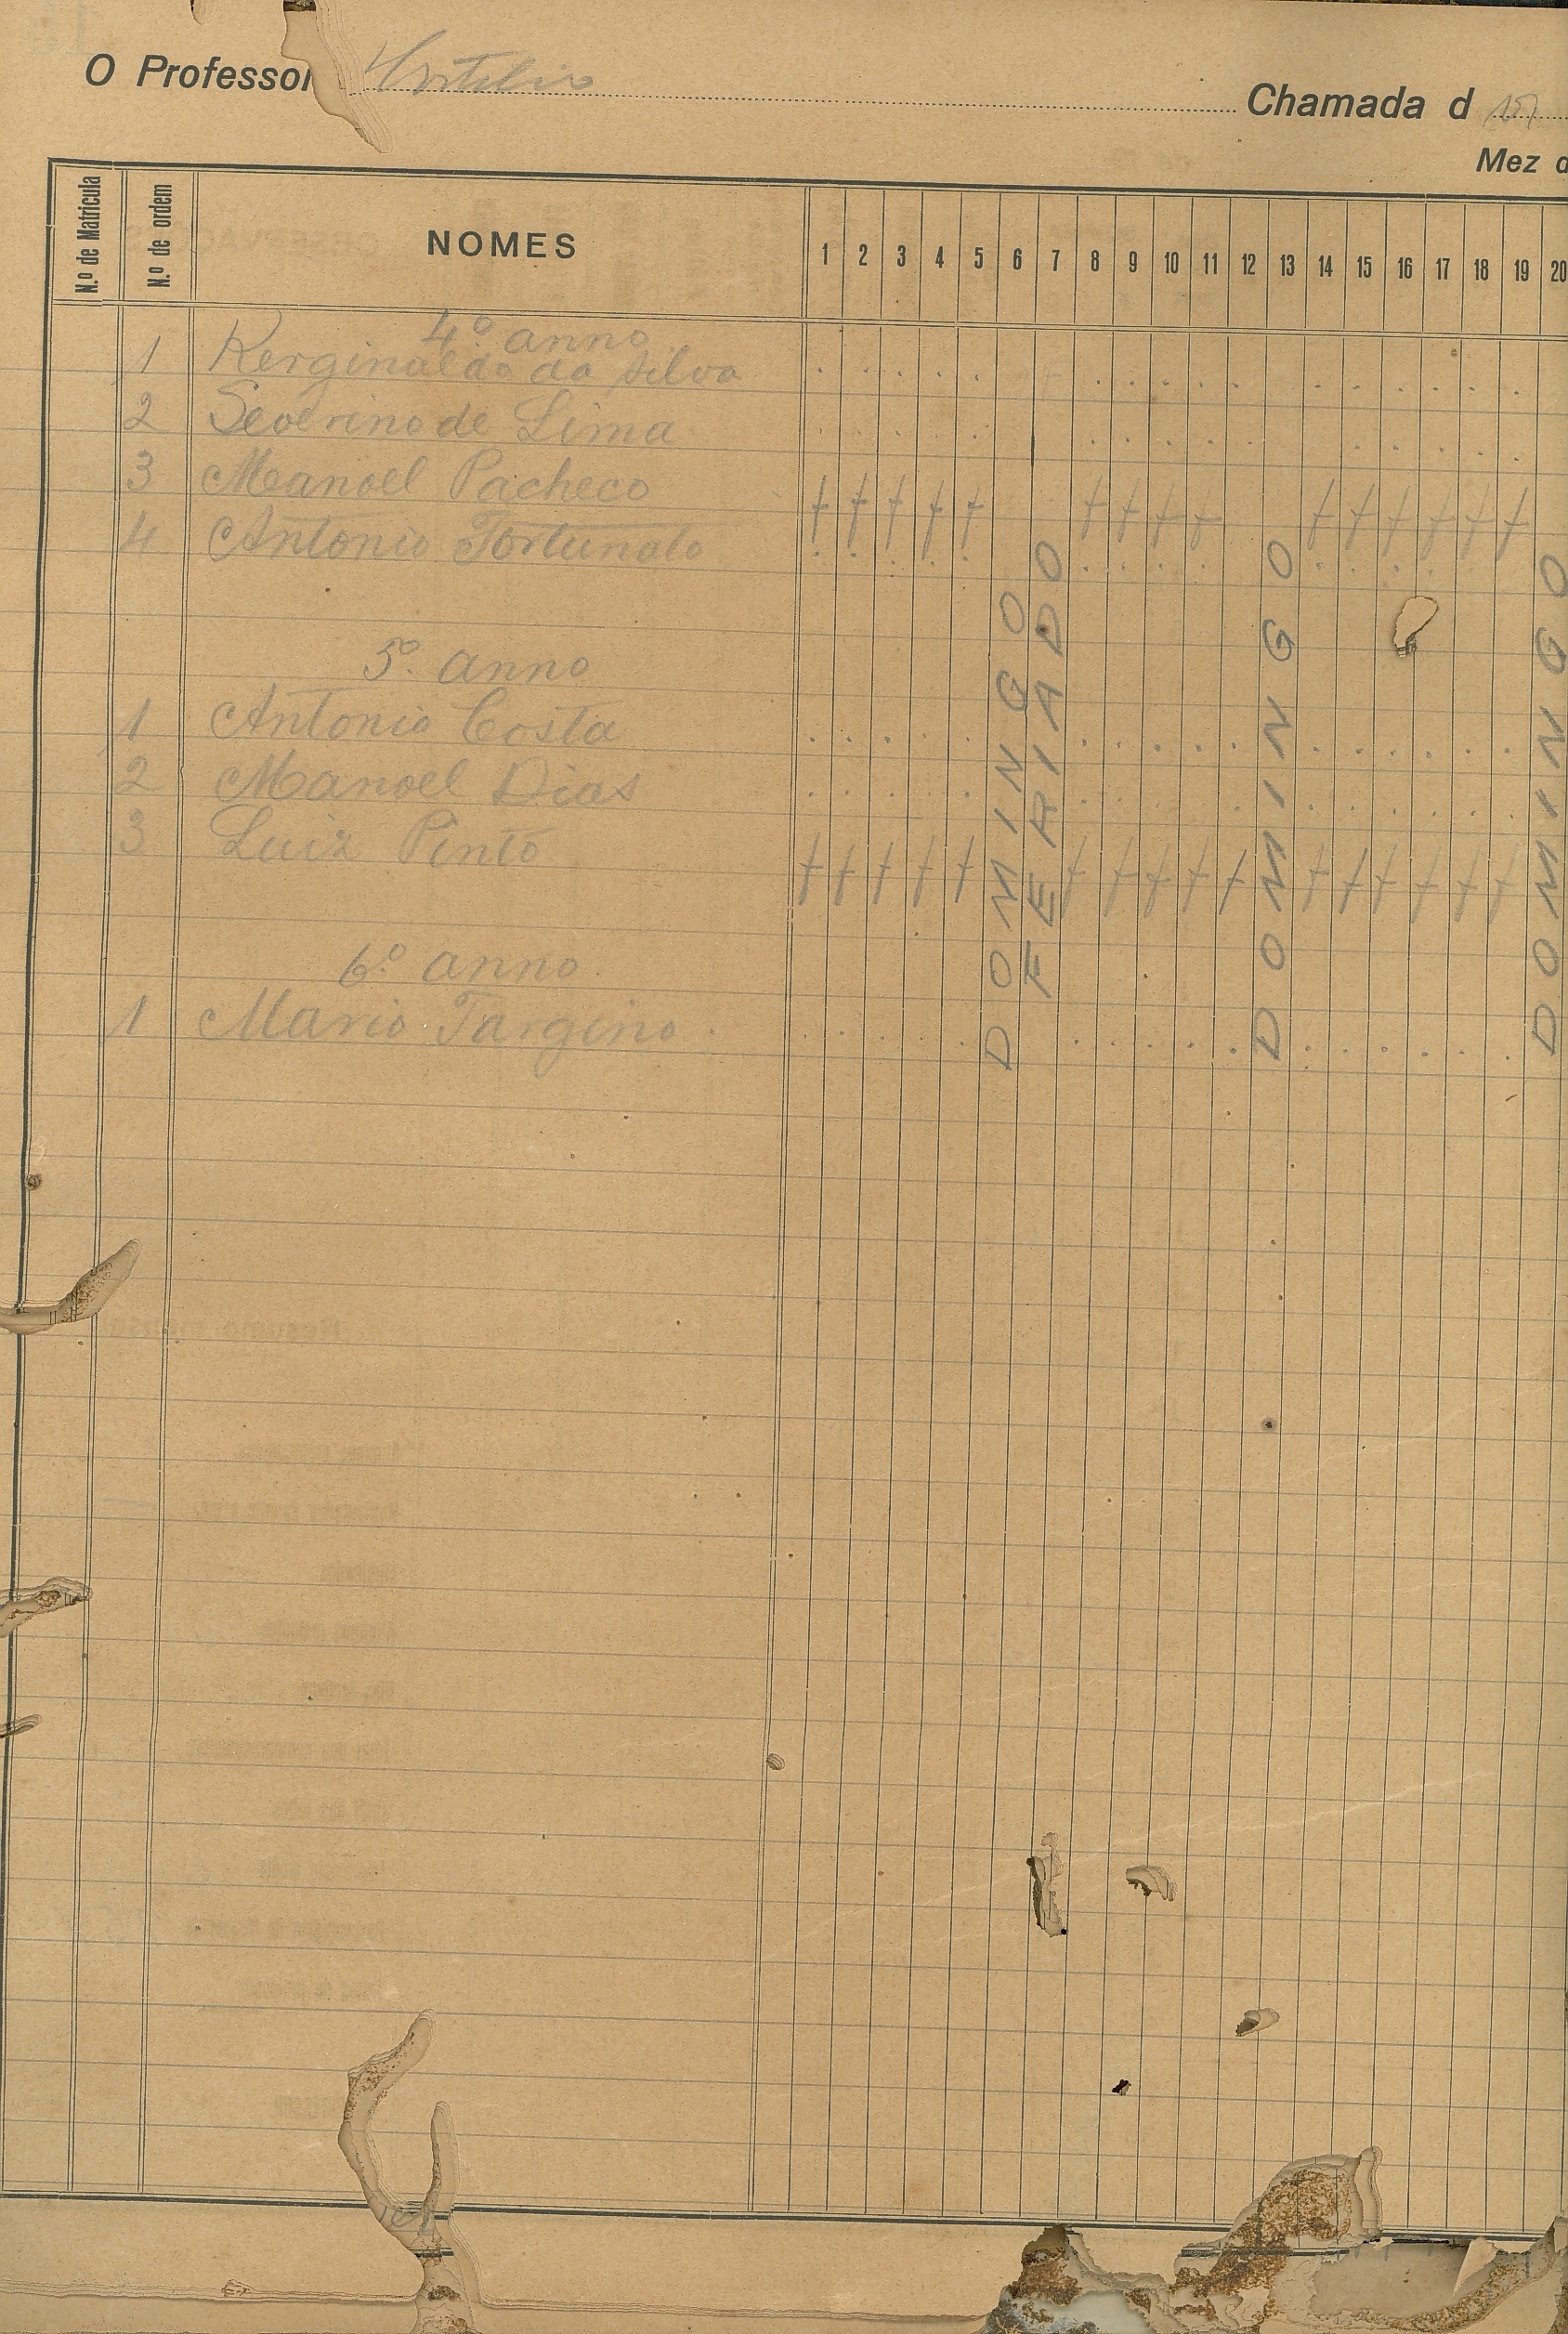 O Professor
Chamada d
Mez d
N.º de Matricula N.º de ordem NOMES 1 2 3 4 5 6 7 8 9 10 11 12 13 14 15 16 17 18 19 20
4º anno
1 Kerginaldo da Silva
2 Severino de Lima
3 Manoel Pacheco
4 Antonio Fortunato
5º anno
1 Antonio Costa
2 Manoel Dias
3 Luiz Pinto
6º anno
1 Mario Targino
DOMINGO
FERIADO
DOMINGO
DOMINGO